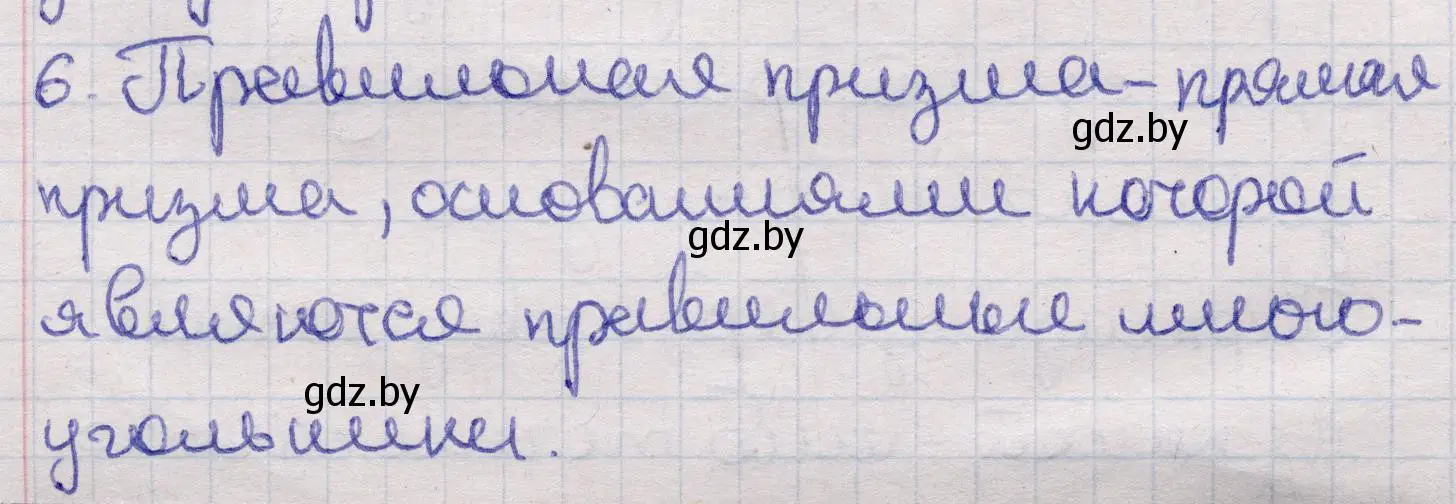 6. Правильная призма - прямая
gdz.by
призма, основаниями которой
gdz.by
являются правильные много-
gdz.by
угольники.